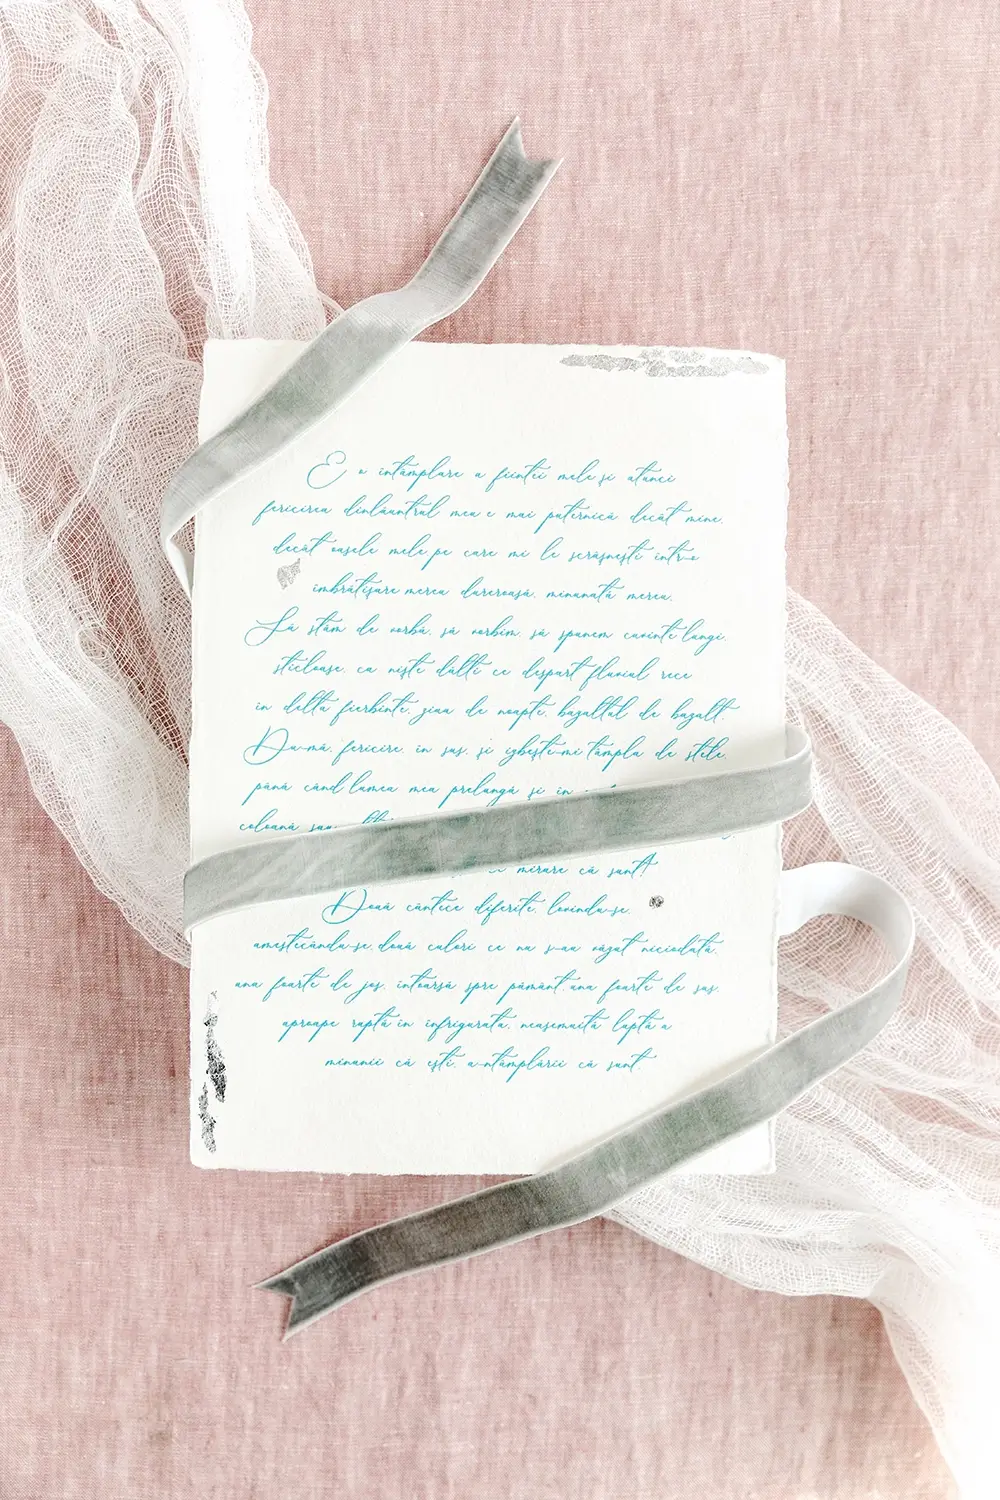 E o întâmplare a ființei mele și atunci
fericirea dinlăuntrul meu e mai puternică decât mine,
decât oasele mele, pe care mi le scrâșnești într-o
îmbrățișare mereu dureroasă, minunată mereu.
Să stăm de vorbă, să vorbim, să spunem cuvinte lungi,
sticloase, ca niște dălți ce despart fluviul rece
în delta fierbinte, ziua de noapte, bazaltul de bazalt.
Du-mă, fericire, în sus, și izbește-mi tâmpla de stele,
până când lumea mea prelungă și în
coloană sau
mirare că sunt!
Două cântece diferite, lovindu-se,
amestecându-se, două culori ce nu s-au văzut niciodată,
una foarte de jos, întoarsă spre pământ, una foarte de sus,
aproape ruptă în înfrigurata, neasemuită luptă a
minunii că ești, a-ntâmplării că sunt.